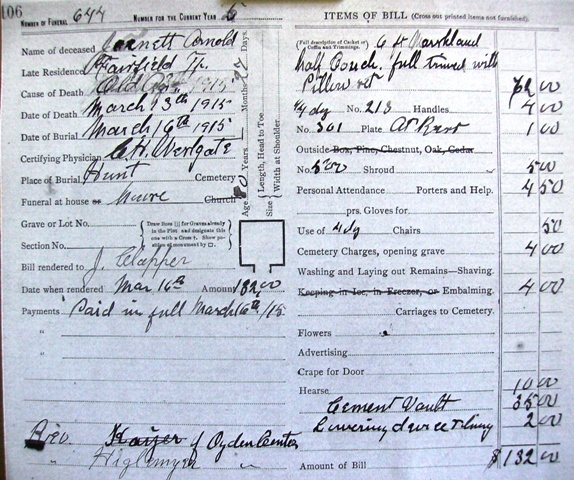 106
NUMBER OF FUNERAL 644 NUMBER FOR THE CURRENT YEAR 6
Name of deceased Arnold
Late Residence Fairfield Tp.
Cause of Death Old Age
Date of Death March 13th 1915
Date of Burial March 16th 1915
Certifying Physician C. H. Westgate
Place of Burial Hunt Cemetery
Funeral at house or Church
Grave or Lot No.
Section No.
Draw lines for Graves already in the Plot and designate this one with a Cross †. Show position of monument by □.
Bill rendered to J. Clapper
Date when rendered Mar 16th Amount 132.00
Payments Paid in full March 16th/15
"
"
Rev. of Ogden Center
" "
Age Years Months Days
Size Length, Head to Toe
Width at Shoulder
ITEMS OF BILL (Cross out printed items not furnished).
(Full description of Casket or Coffin and Trimmings.
half Couch. full trimed with
Pillow set 72 00
No. 213 Handles 4 00
No. 301 Plate At Rest 1 00
Outside Box, Pine, Chestnut, Oak, Cedar
No. 500 Shroud 5 00
Personal Attendance Porters and Help. 4 50
prs. Gloves for
Use of 4 dy Chairs 50
Cemetery Charges, opening grave 4 00
Washing and Laying out Remains—Shaving.
Keeping in Ice, in Freezer, or Embalming. 4 00
Carriages to Cemetery.
Flowers
Advertising
Crape for Door
Hearse 10 00
Cement Vault 35 00
Lowering device & lining 2 00
Amount of Bill $132 00